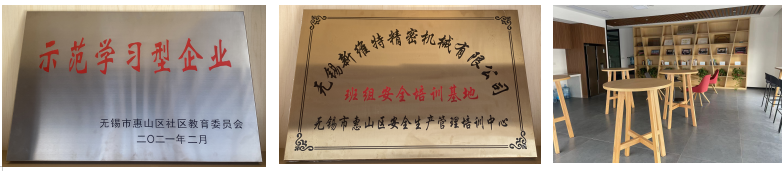 示范学习型企业
无锡市惠山区社区教育委员会
二〇二一年二月
无锡新维特精密机械有限公司
班组安全培训基地
无锡市惠山区安全生产管理培训中心